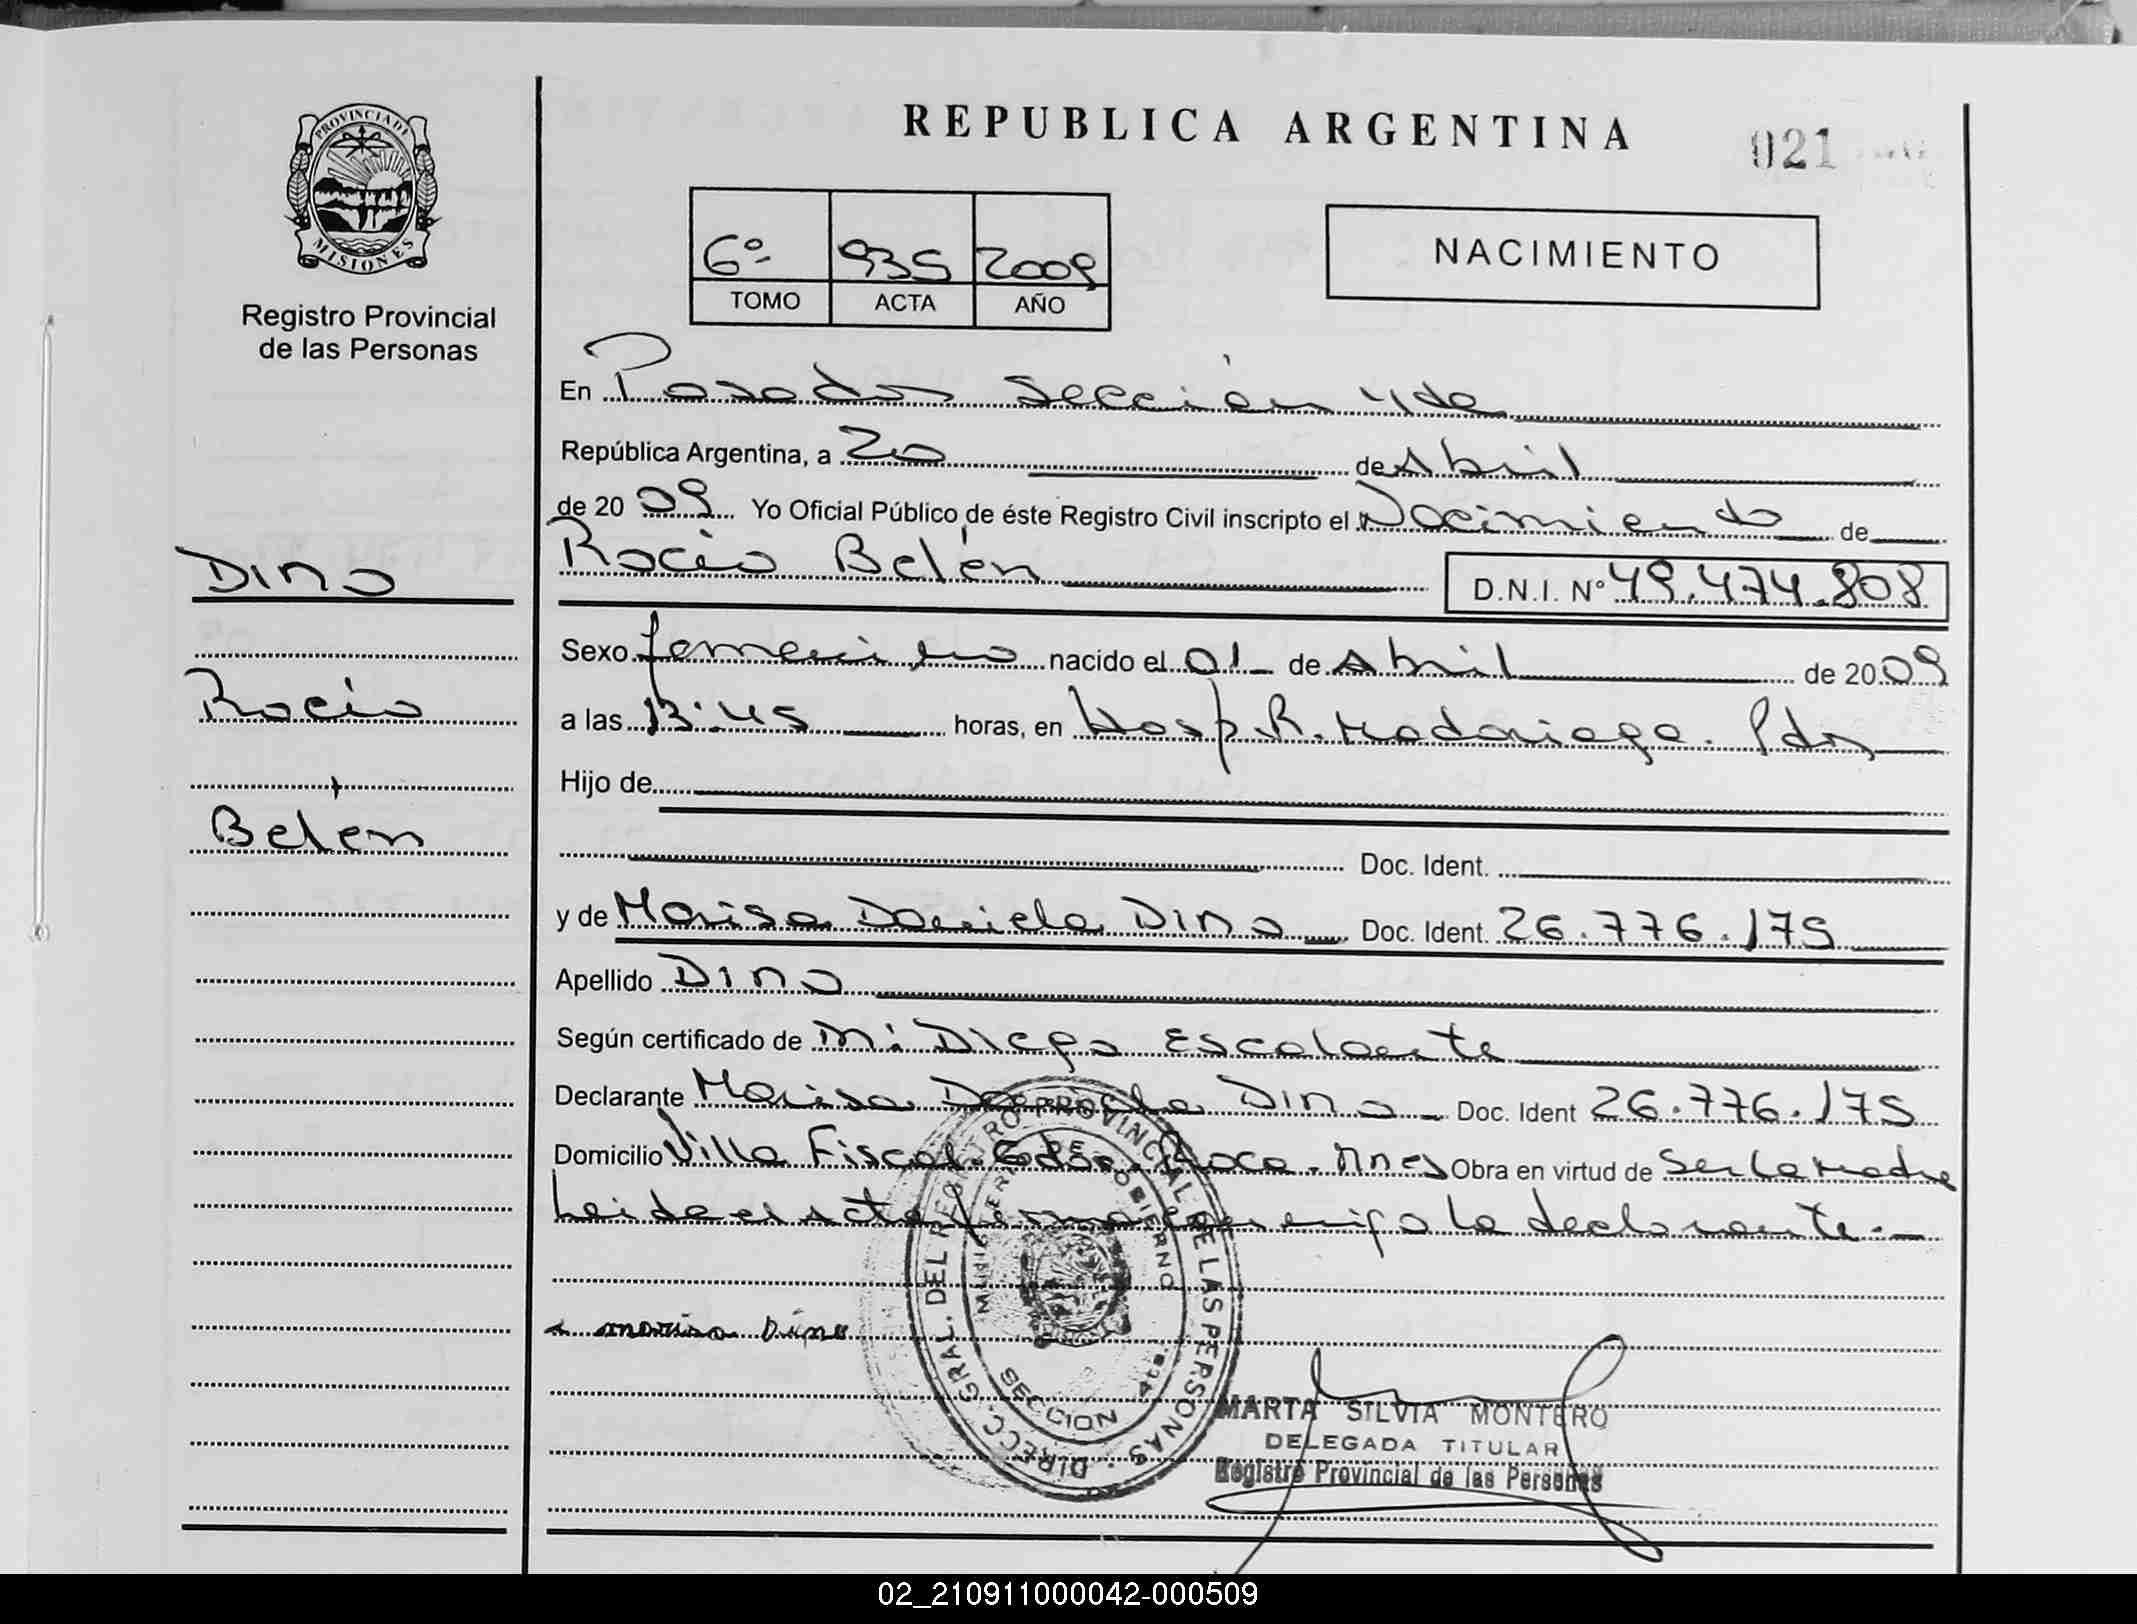 REPUBLICA ARGENTINA
021
PROVINCIA DE MISIONES
Registro Provincial
de las Personas
6º 935 2009
TOMO ACTA AÑO
NACIMIENTO
En Posadas Sección 4ta
República Argentina, a 20 de Abril
de 2009 Yo Oficial Público de éste Registro Civil inscripto el Nacimiento de
Dino
Rocío Belén D.N.I. Nº 49.474.808
Sexo femenino nacido el 01 de Abril de 2009
Rocío
a las 13:45 horas, en Hosp. R. Madariaga. Pdas
Hijo de
Belén
Doc. Ident.
y de Marisa Daniela Dino Doc. Ident. 26.776.175
Apellido Dino
Según certificado de Diego Escalante
Declarante Marisa Daniela Dino Doc. Ident 26.776.175
Domicilio Villa Fiscal. Gdor. Roca. Mnes Obra en virtud de Ser la Madre
Leida el acta firma conmigo la declarante.-
Marisa Dino
DIRECC. GRAL. DEL REGISTRO PROVINCIAL DE LAS PERSONAS
MINISTERIO DE GOBIERNO
SECCION 4ta.
MARTA SILVIA MONTERO
DELEGADA TITULAR
Registro Provincial de las Personas
02_210911000042-000509